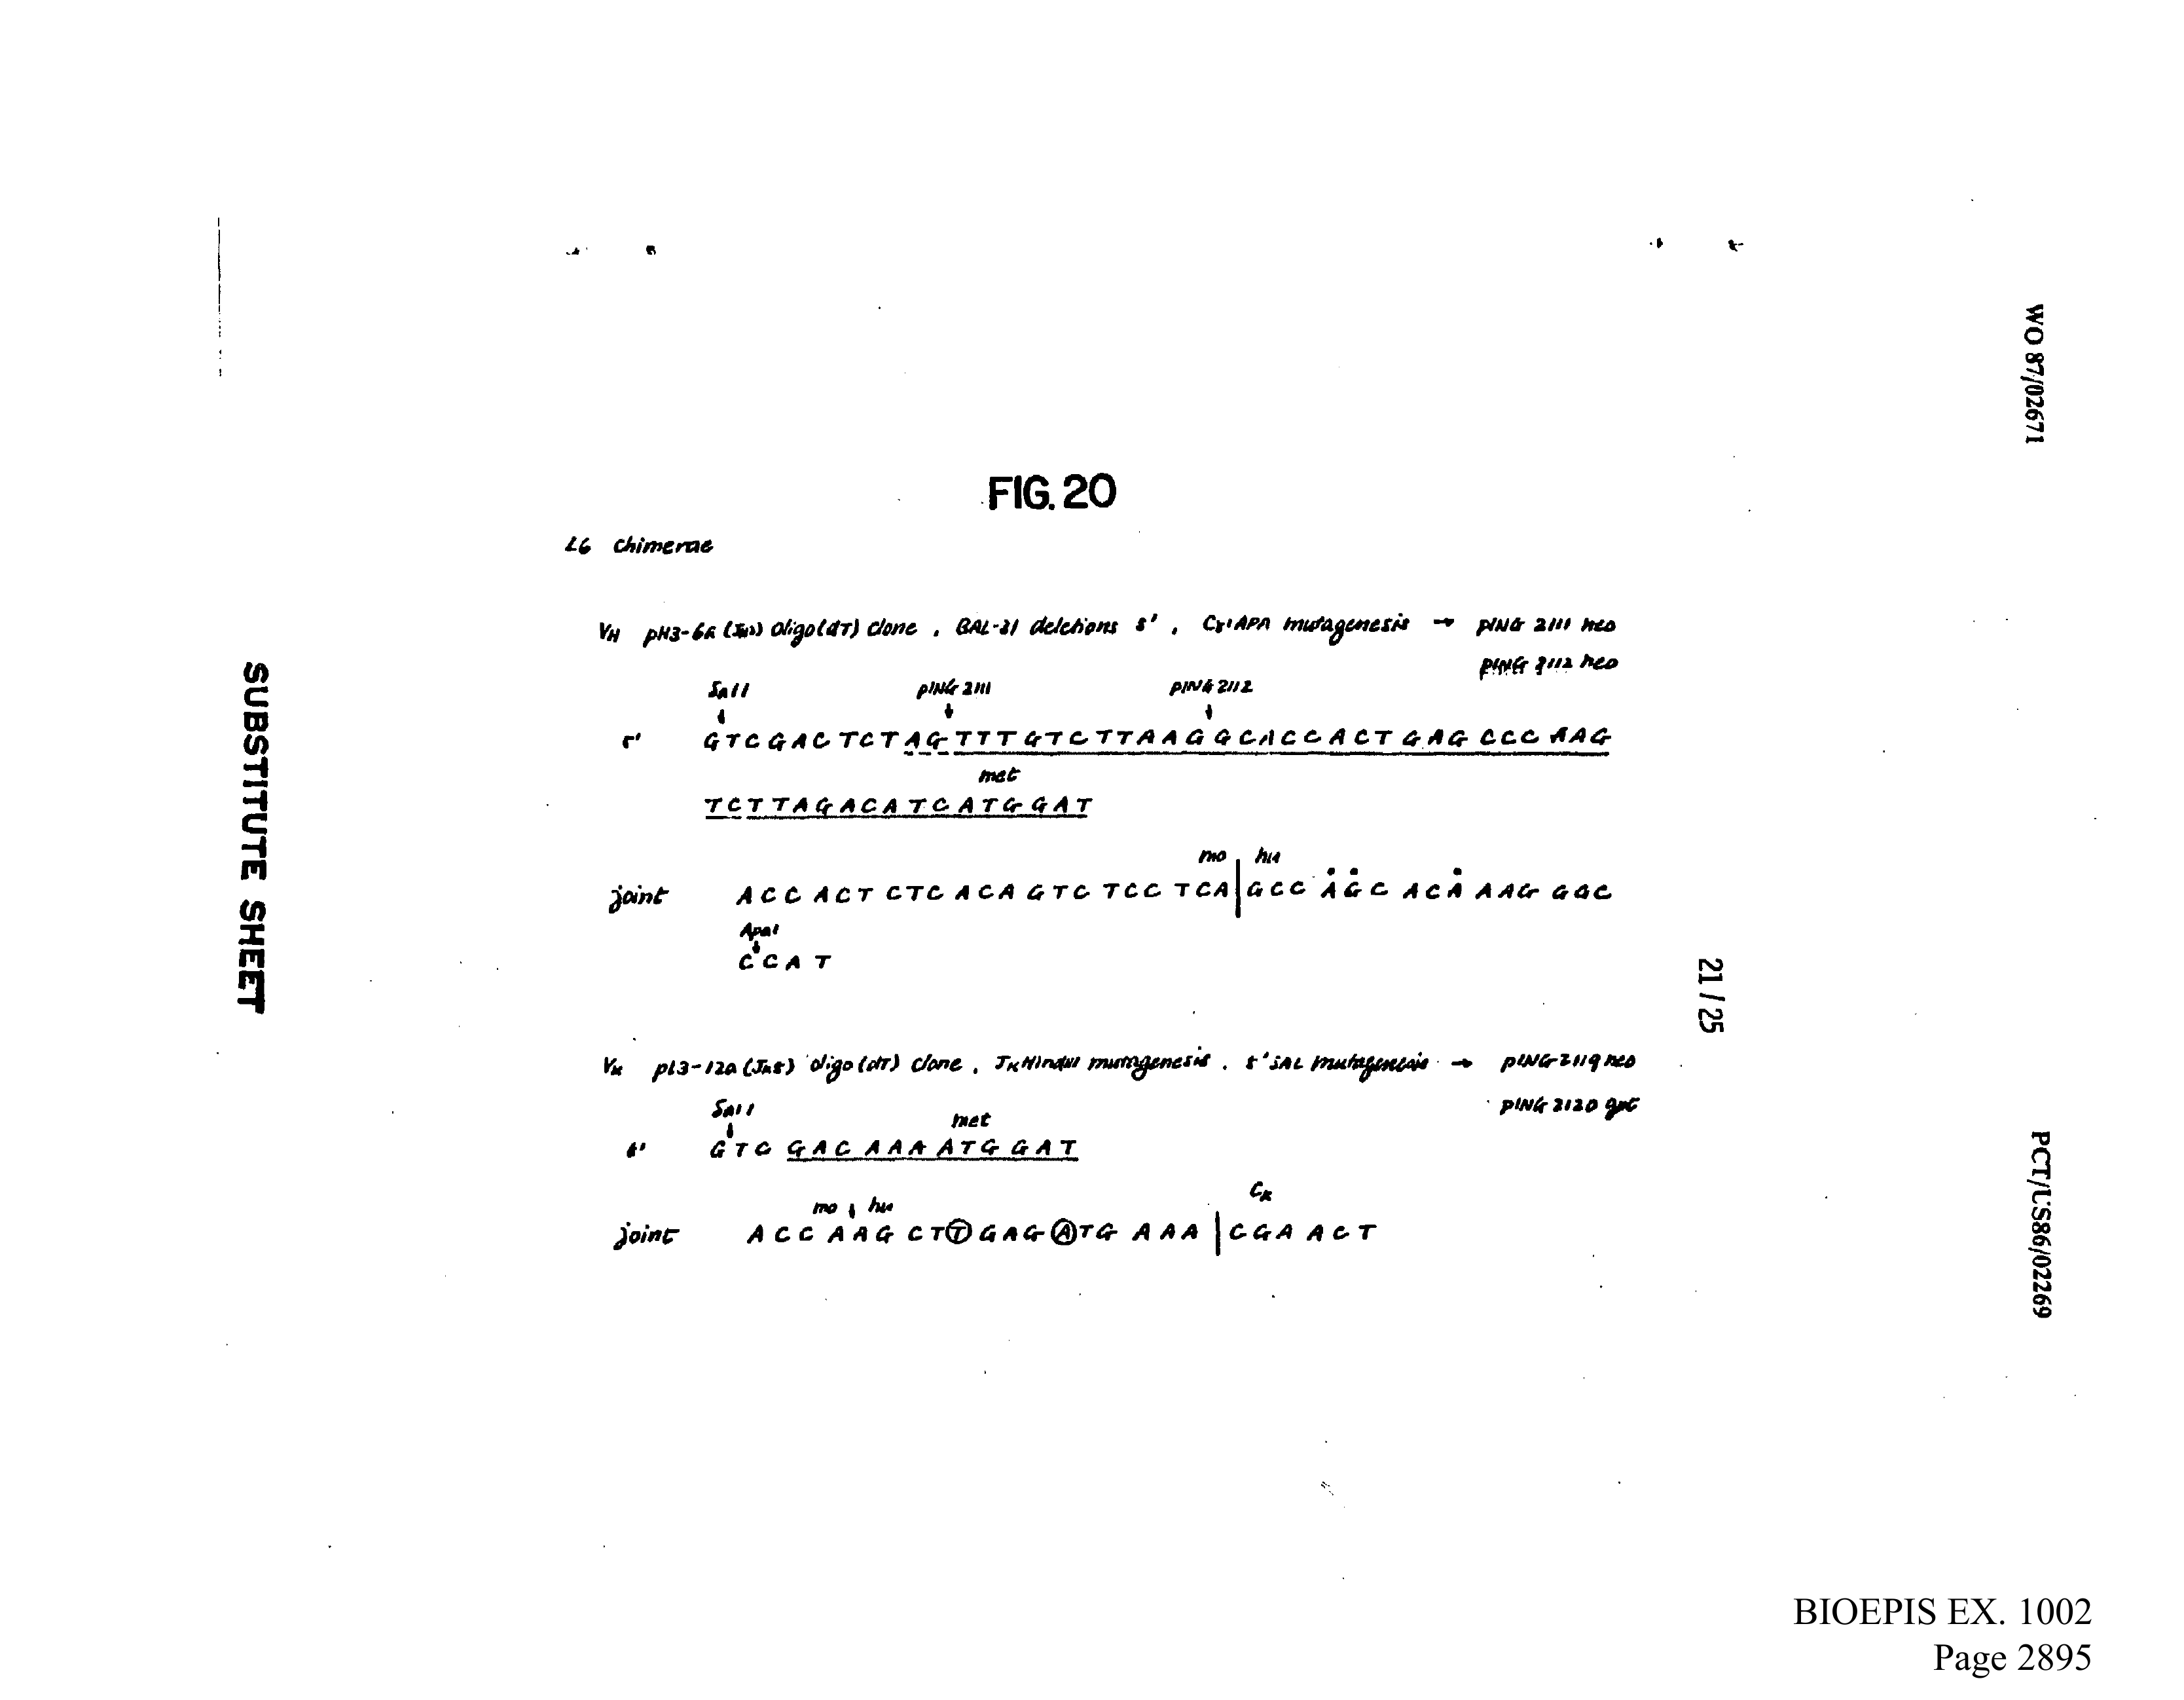 WO 87/02671
PCT/US86/02269
FIG. 20
L6 Chimerae
VH pH3-6a (JH2) Oligo(dT) clone, BAL-31 deletions 5', Cγ1APA mutagenesis → pING 2111 neo
pING 2112 neo
SalI pING 2111 pING 2112
↓ ↓ ↓
5' GTCGACTCTAGTTTGTCTTAAGGCACCACTGAGCCCAAG
met
TCTTAGACATCATGGAT
mo | hu
joint ACC ACT CTC ACA GTC TCC TCA | GCC AGC ACA AAG GGC
ApaI
↓
CCAT
21/25
VK pL3-12a (JK5) oligo(dT) clone, JKHindIII mutagenesis, 5' SAL mutagenesis → pING 2119 neo
pING 2120 gpt
SalI met
↓
5' GTC GAC AAA ATG GAT
mo ↓ hu CK
joint ACC AAG CTT GAG ATG AAA | CGA ACT
SUBSTITUTE SHEET
BIOEPIS EX. 1002
Page 2895